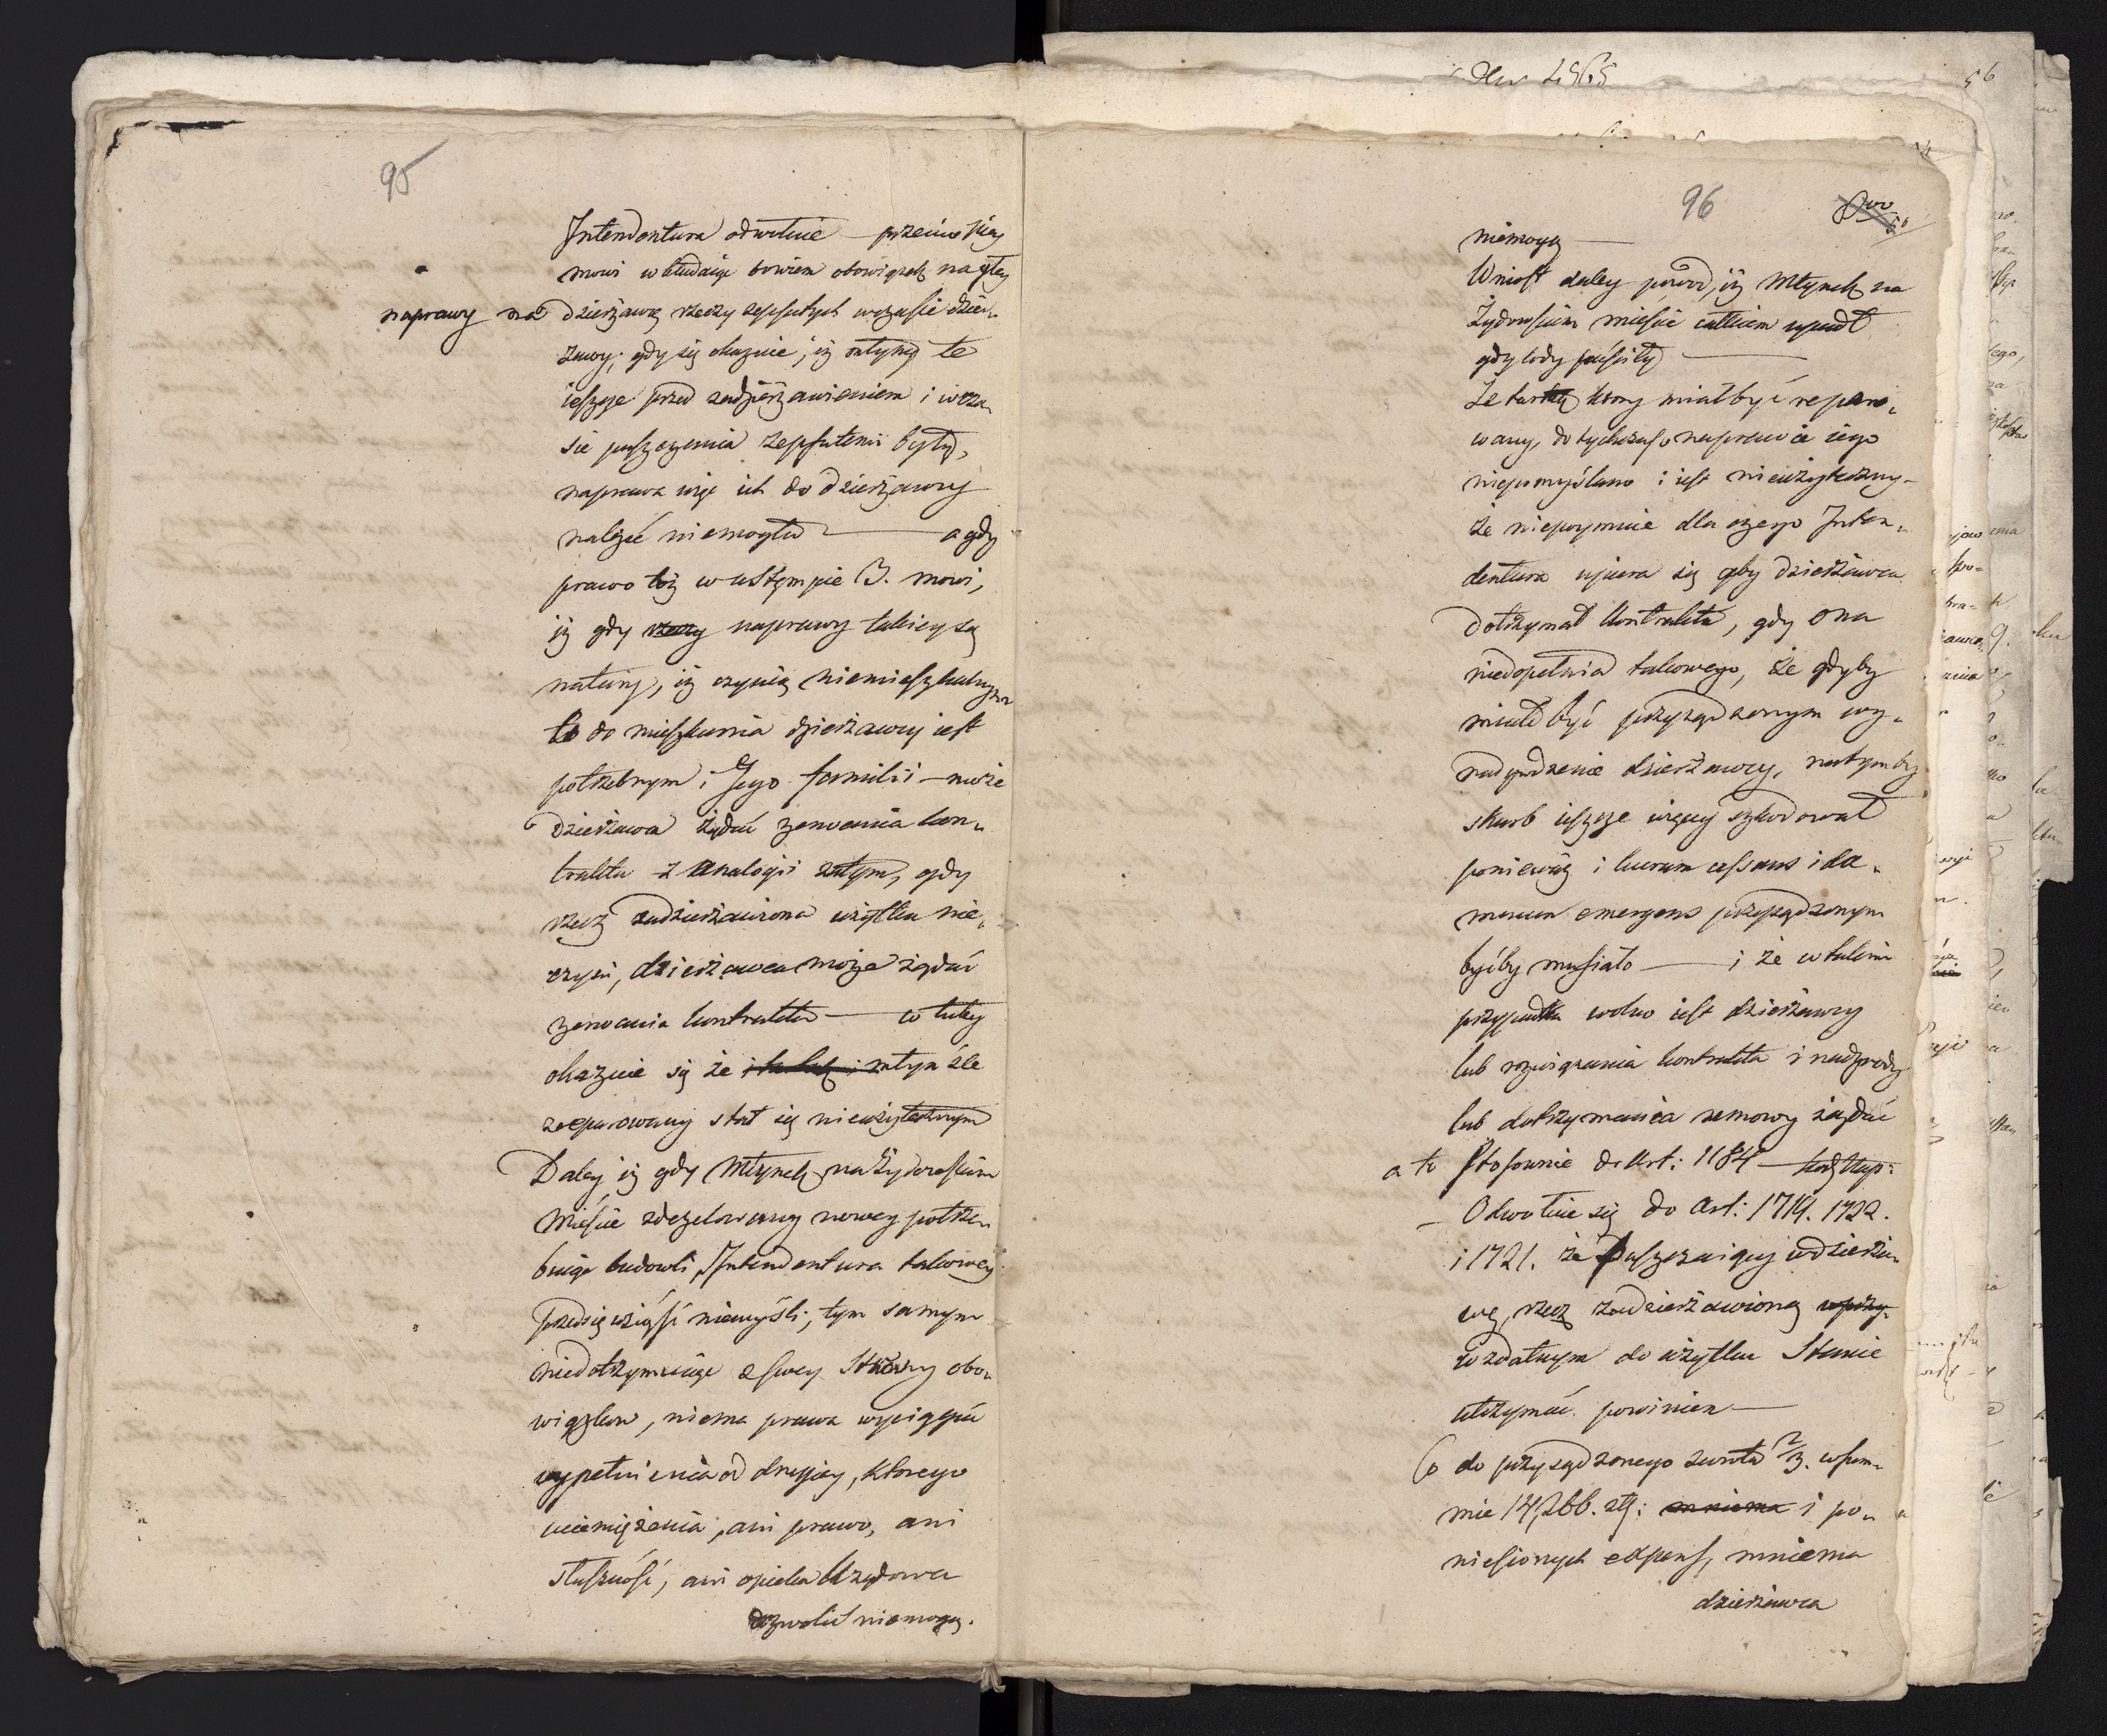 95
Intendentura odwołuie — przeciw niey
mowi wkładaiąc bowiem obowiązek
naprawy na Dzierżawcę rzeczy zepsutych wczasie dzier„
żawy; gdy się okazuie, iż młyny te
ieszcze przed zadzierżawieniem i wcza„
sie puszczenia zepsutemi były,
naprawa więc ich do dzierżawcy
należeć niemogła — a gdy
prawo toż w ustępie 3. mowi,
iż gdy naprawy takiey są
natury, iż czynią niemieszkalnym
to do mieszkania dzierżawcy iest
potrzebnym i Jego familii — może
Dzierżawca żądać zerwania kon„
traktu z analogii zatym, gdy
rzecz zadzierżawiona użytku nie„
czyni, dzierżawca może żądać
zerwania kontraktu — co tutey
okazuie się że młyn źle
zreparowany stał się nieużytecznym
Daley iż gdy Młynek na Żydowskim
Mieście zdezelowany nowey potrze„
buie budowli, Intendentura takowey
przedsięwziąść niemyśli, tym samym
niedotrzymuiąc z swey strony obo„
wiązków, niema prawa wyciągać
wypełnienia od drugiey, którego
uciemiężenia, ani prawo, ani
słuszność, ani opieka Urzędowa
dozwolić niemogą.
96
56
niemogą —
Wniosł daley powód, iż Młynek na
Żydowskim mieście całkiem upadł
gdy lody puściły —
Że który miał być reparo„
wany, dotychczas o naprawie iego
niepomyślano i iest nieużyteczny —
że niepoymuie dla czego Inten„
dentura upiera się aby dzierżawca
dotrzymał kontraktu, gdy ona
niedopełnia takowego, że gdyby
miało być przysądzonym wy„
nadgrodzenie dzierżawcy, natym by
skarb ieszcze więcey szkodował
ponieważ i lucrum cessans i da„
mnum emergens przysądzonym
byćby musiało — i że w takim
przypadku wolno iest dzierżawcy
lub rozwiązania kontraktu i nadgrody
lub dotrzymania umowy żądać
a to stosownie do Art: 1184
— Odwołuie się do Art: 1719. 1722.
i 1721. że puszczaiący w dzierża„
wę, rzecz zadzierżawioną
w zdatnym do użytku stanie
utrzymać powinien —
Co do przysądzonego zwrotu 2/3. w sum„
mie 14,266. złp: i po„
niesionych expens, mniema
dzierżawca